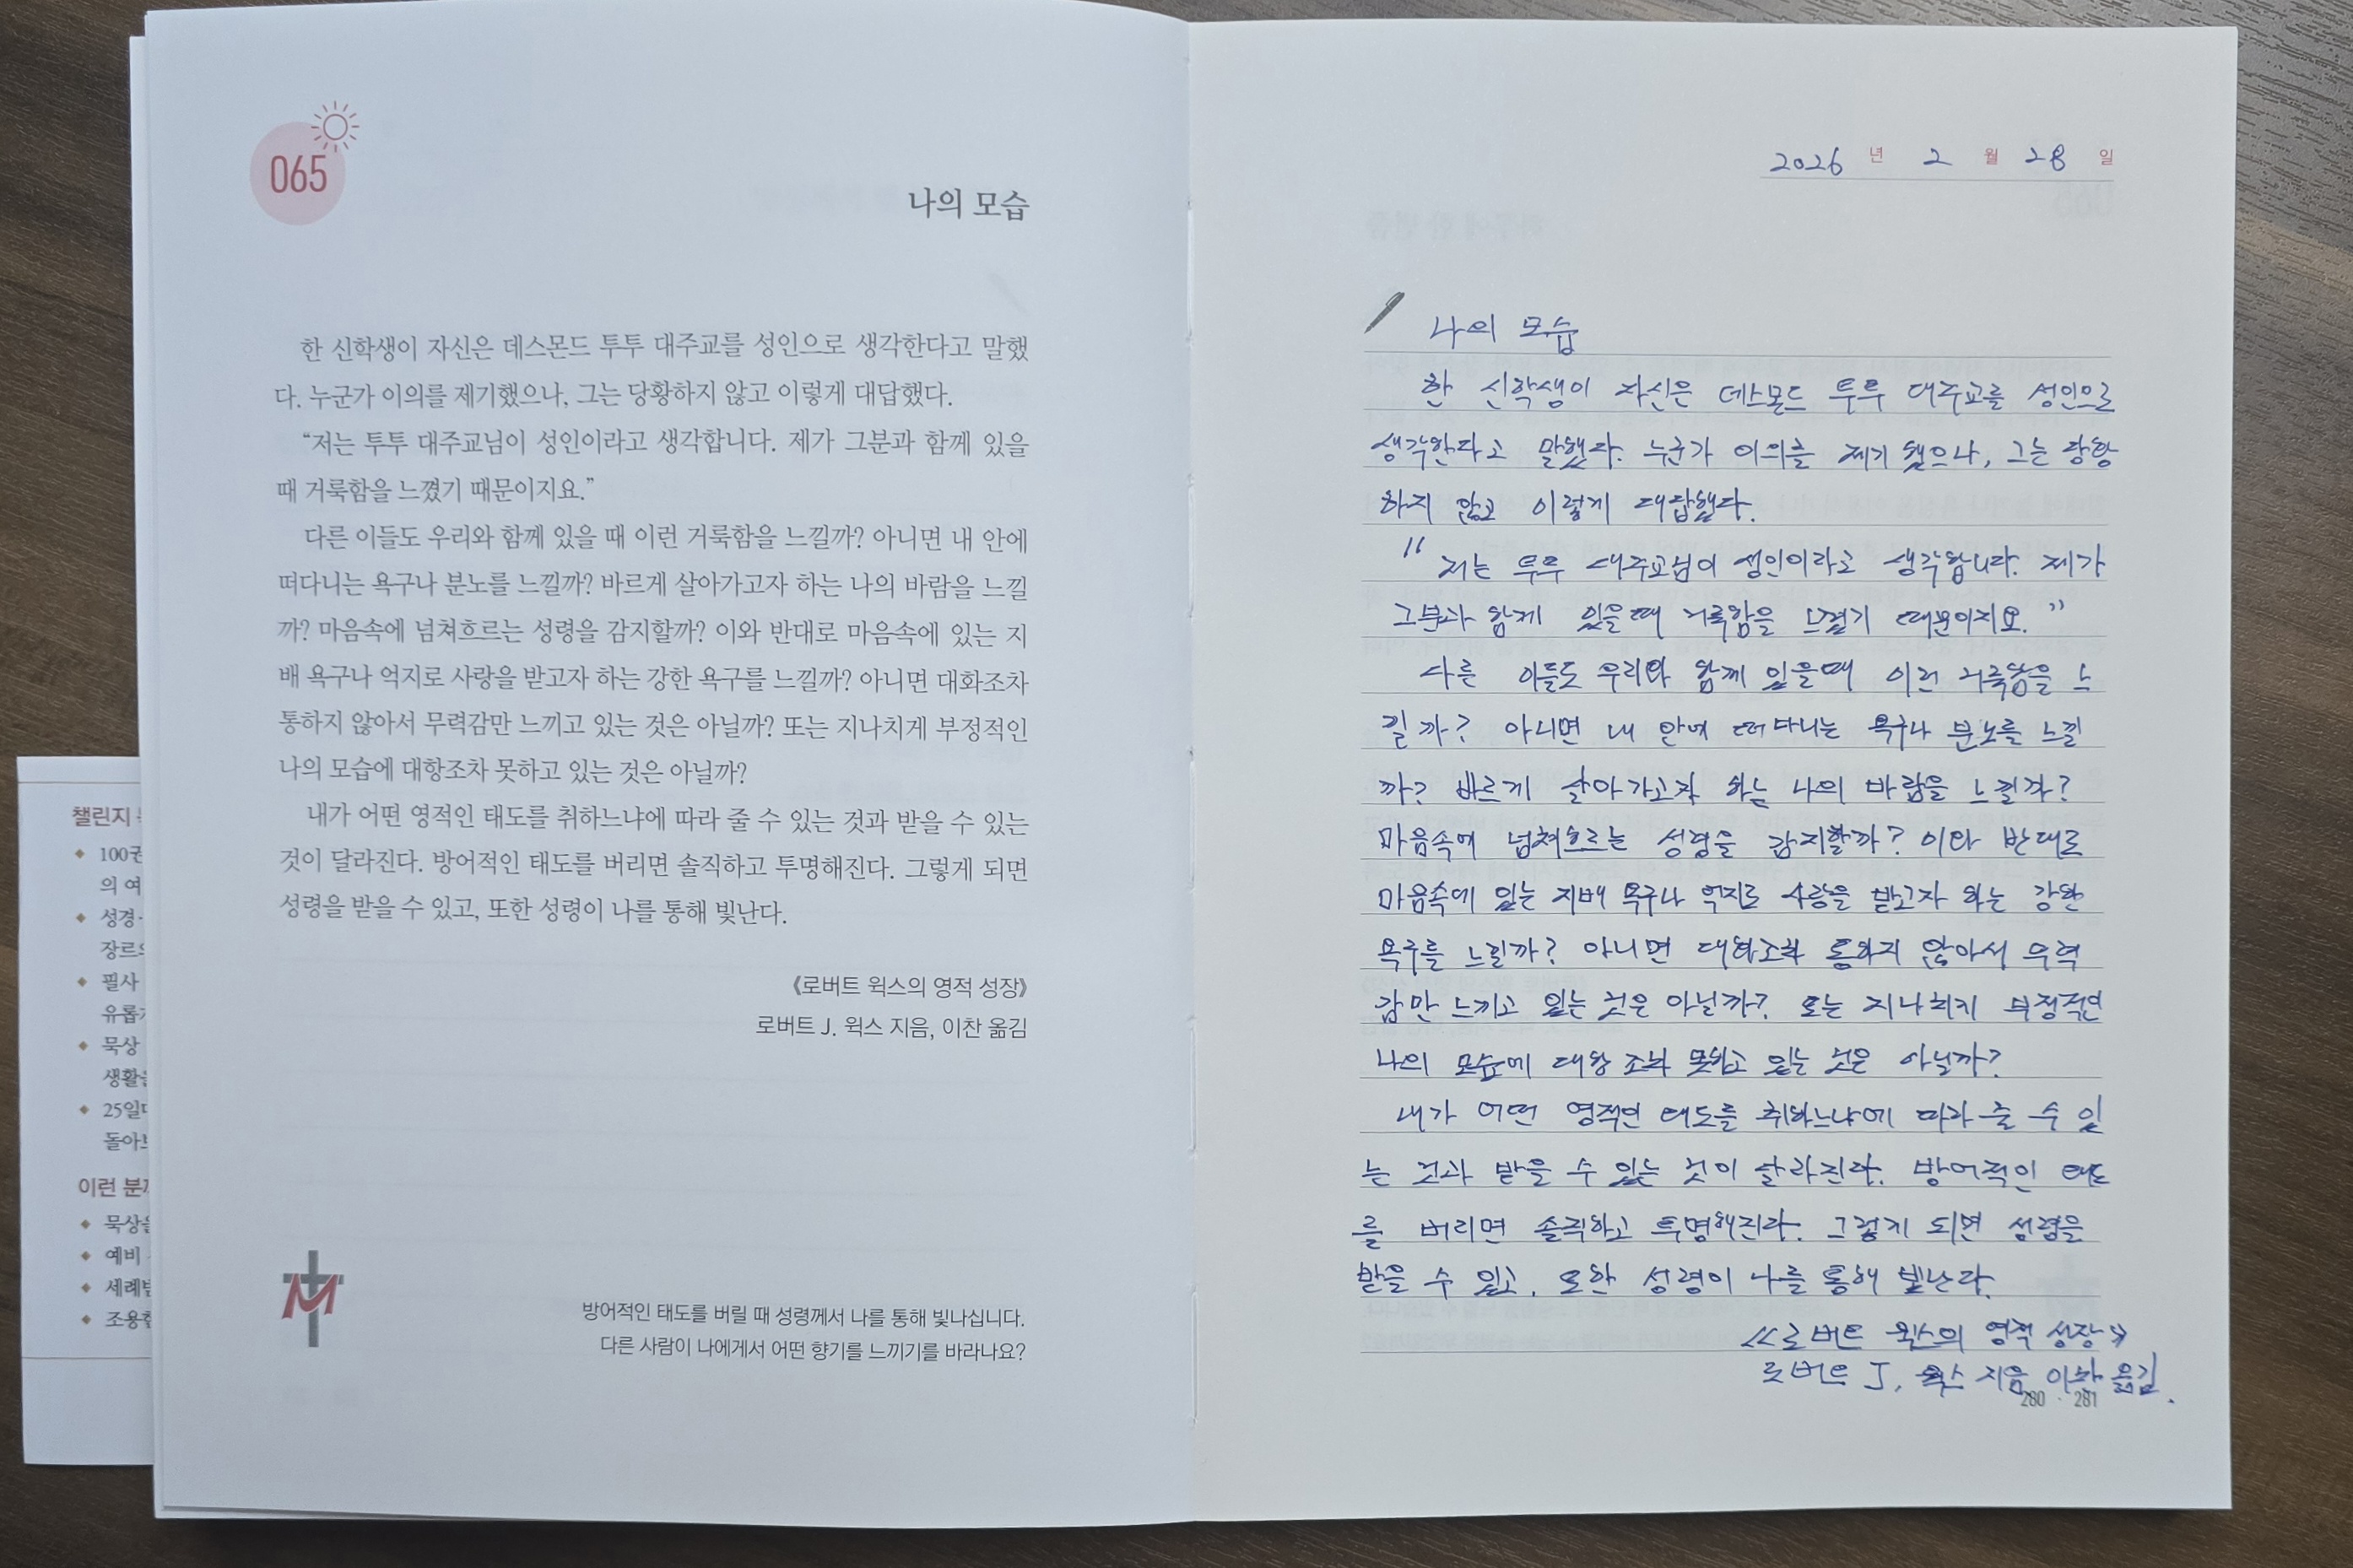 065
나의 모습
한 신학생이 자신은 데스몬드 투투 대주교를 성인으로 생각한다고 말했
다. 누군가 이의를 제기했으나, 그는 당황하지 않고 이렇게 대답했다.
“저는 투투 대주교님이 성인이라고 생각합니다. 제가 그분과 함께 있을
때 거룩함을 느꼈기 때문이지요.”
다른 이들도 우리와 함께 있을 때 이런 거룩함을 느낄까? 아니면 내 안에
떠다니는 욕구나 분노를 느낄까? 바르게 살아가고자 하는 나의 바람을 느낄
까? 마음속에 넘쳐흐르는 성령을 감지할까? 이와 반대로 마음속에 있는 지
배 욕구나 억지로 사랑을 받고자 하는 강한 욕구를 느낄까? 아니면 대화조차
통하지 않아서 무력감만 느끼고 있는 것은 아닐까? 또는 지나치게 부정적인
나의 모습에 대항조차 못하고 있는 것은 아닐까?
내가 어떤 영적인 태도를 취하느냐에 따라 줄 수 있는 것과 받을 수 있는
것이 달라진다. 방어적인 태도를 버리면 솔직하고 투명해진다. 그렇게 되면
성령을 받을 수 있고, 또한 성령이 나를 통해 빛난다.
《로버트 윅스의 영적 성장》
로버트 J. 윅스 지음, 이찬 옮김
M
방어적인 태도를 버릴 때 성령께서 나를 통해 빛나십니다.
다른 사람이 나에게서 어떤 향기를 느끼기를 바라나요?
챌린지
100권
의 여
성경·
장르의
필사
유롭게
묵상
생활을
25일
돌아보
이런 분께
묵상을
예비
세례받
조용한
2026 년 2 월 28 일
나의 모습
한 신학생이 자신은 데스몬드 투투 대주교를 성인으로
생각한다고 말했다. 누군가 이의를 제기 했으나, 그는 당황
하지 않고 이렇게 대답했다.
“ 저는 투투 대주교님이 성인이라고 생각합니다. 제가
그분과 함께 있을때 거룩함을 느꼈기 때문이지요. ”
다른 이들도 우리와 함께 있을때 이런 거룩함을 느
낄까? 아니면 내 안에 떠다니는 욕구나 분노를 느낄
까? 바르게 살아가고자 하는 나의 바람을 느낄까?
마음속에 넘쳐흐르는 성령을 감지할까? 이와 반대로
마음속에 있는 지배 욕구나 억지로 사랑을 받고자 하는 강한
욕구를 느낄까? 아니면 대화조차 통하지 않아서 무력
감만 느끼고 있는 것은 아닐까? 또는 지나치게 부정적인
나의 모습에 대항 조차 못하고 있는 것은 아닐까?
내가 어떤 영적인 태도를 취하느냐에 따라 줄 수 있
는 것과 받을 수 있는 것이 달라진다. 방어적인 태도
를 버리면 솔직하고 투명해진다. 그렇게 되면 성령을
받을 수 있고, 또한 성령이 나를 통해 빛난다.
《로버트 윅스의 영적 성장》
로버트 J. 윅스 지음 이찬 옮김.
280 · 281